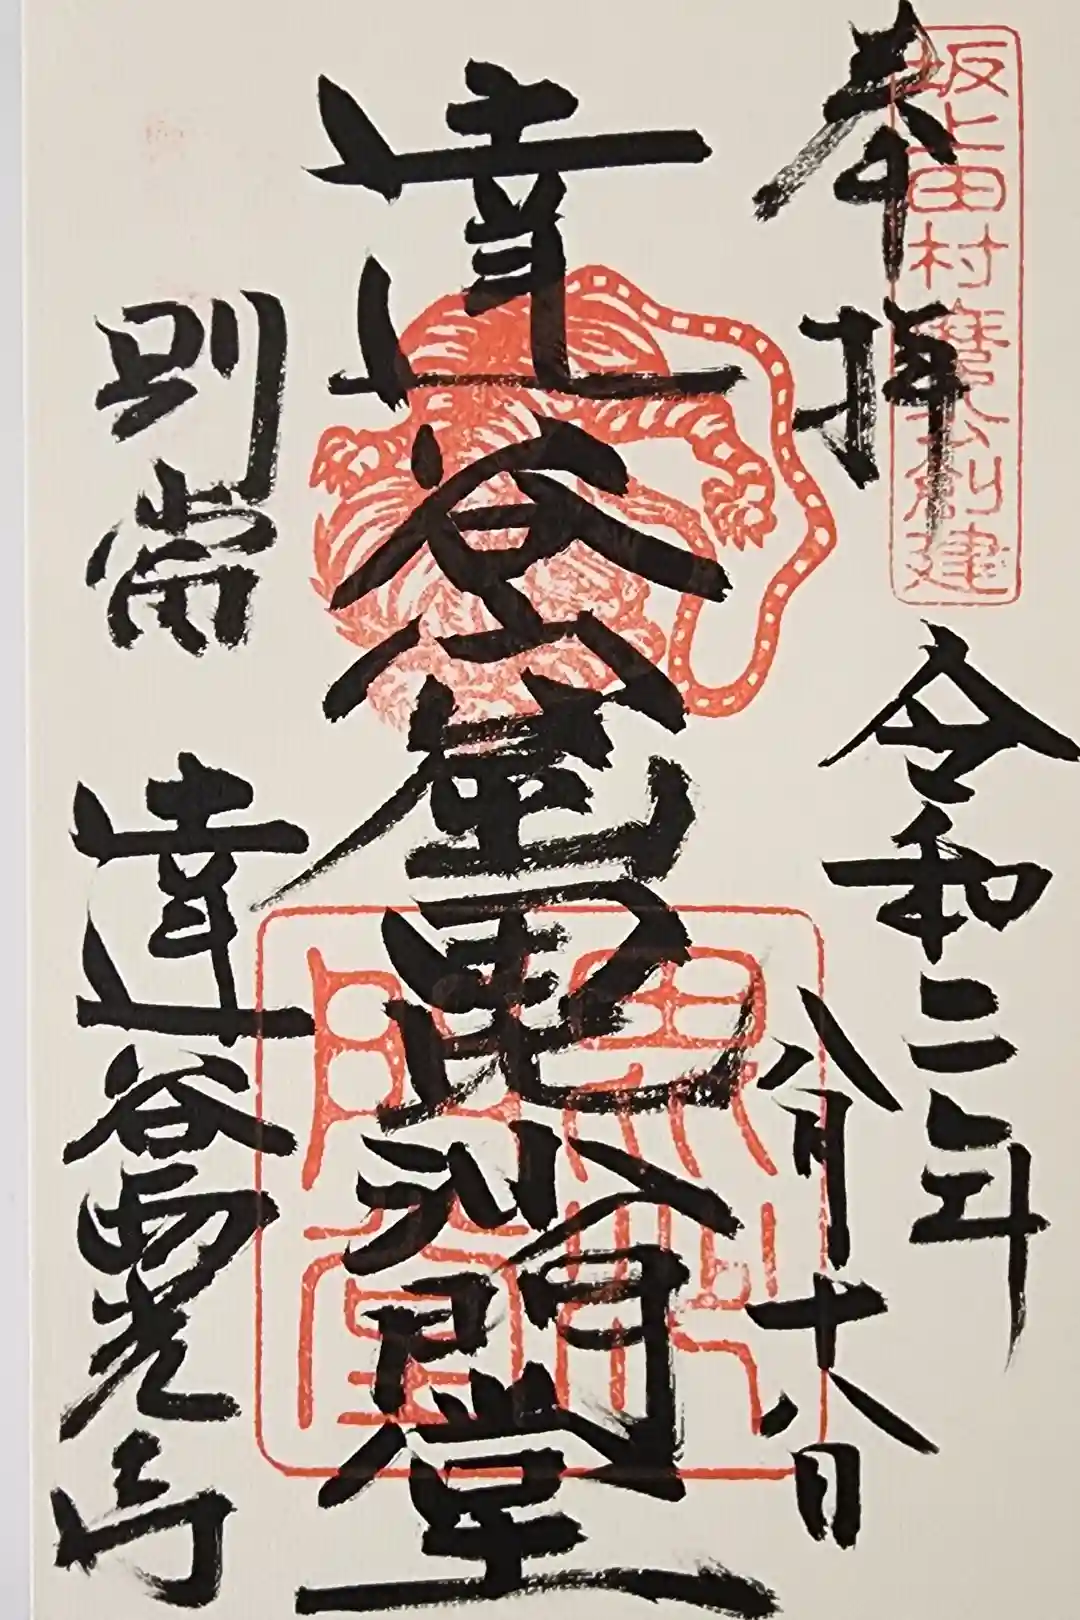 坂上田村麿公創建
奉拝
令和二年
八月十八日
達谷窟毘沙門堂
則常
達谷西光寺